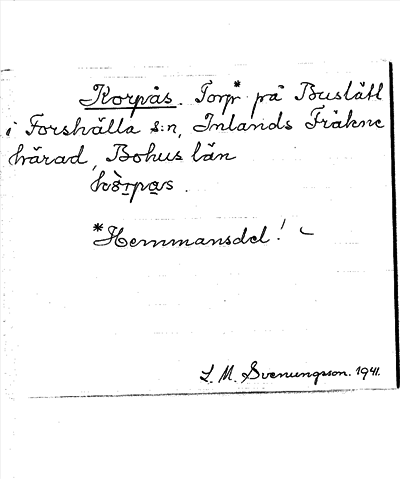 Korpås. Torp* på Buslätt
i Forshälla s:n, Inlands Fräkne
härad, Bohus län
kòrpas.
*Hemmansdel!
L. M. Svenungsson. 1941.